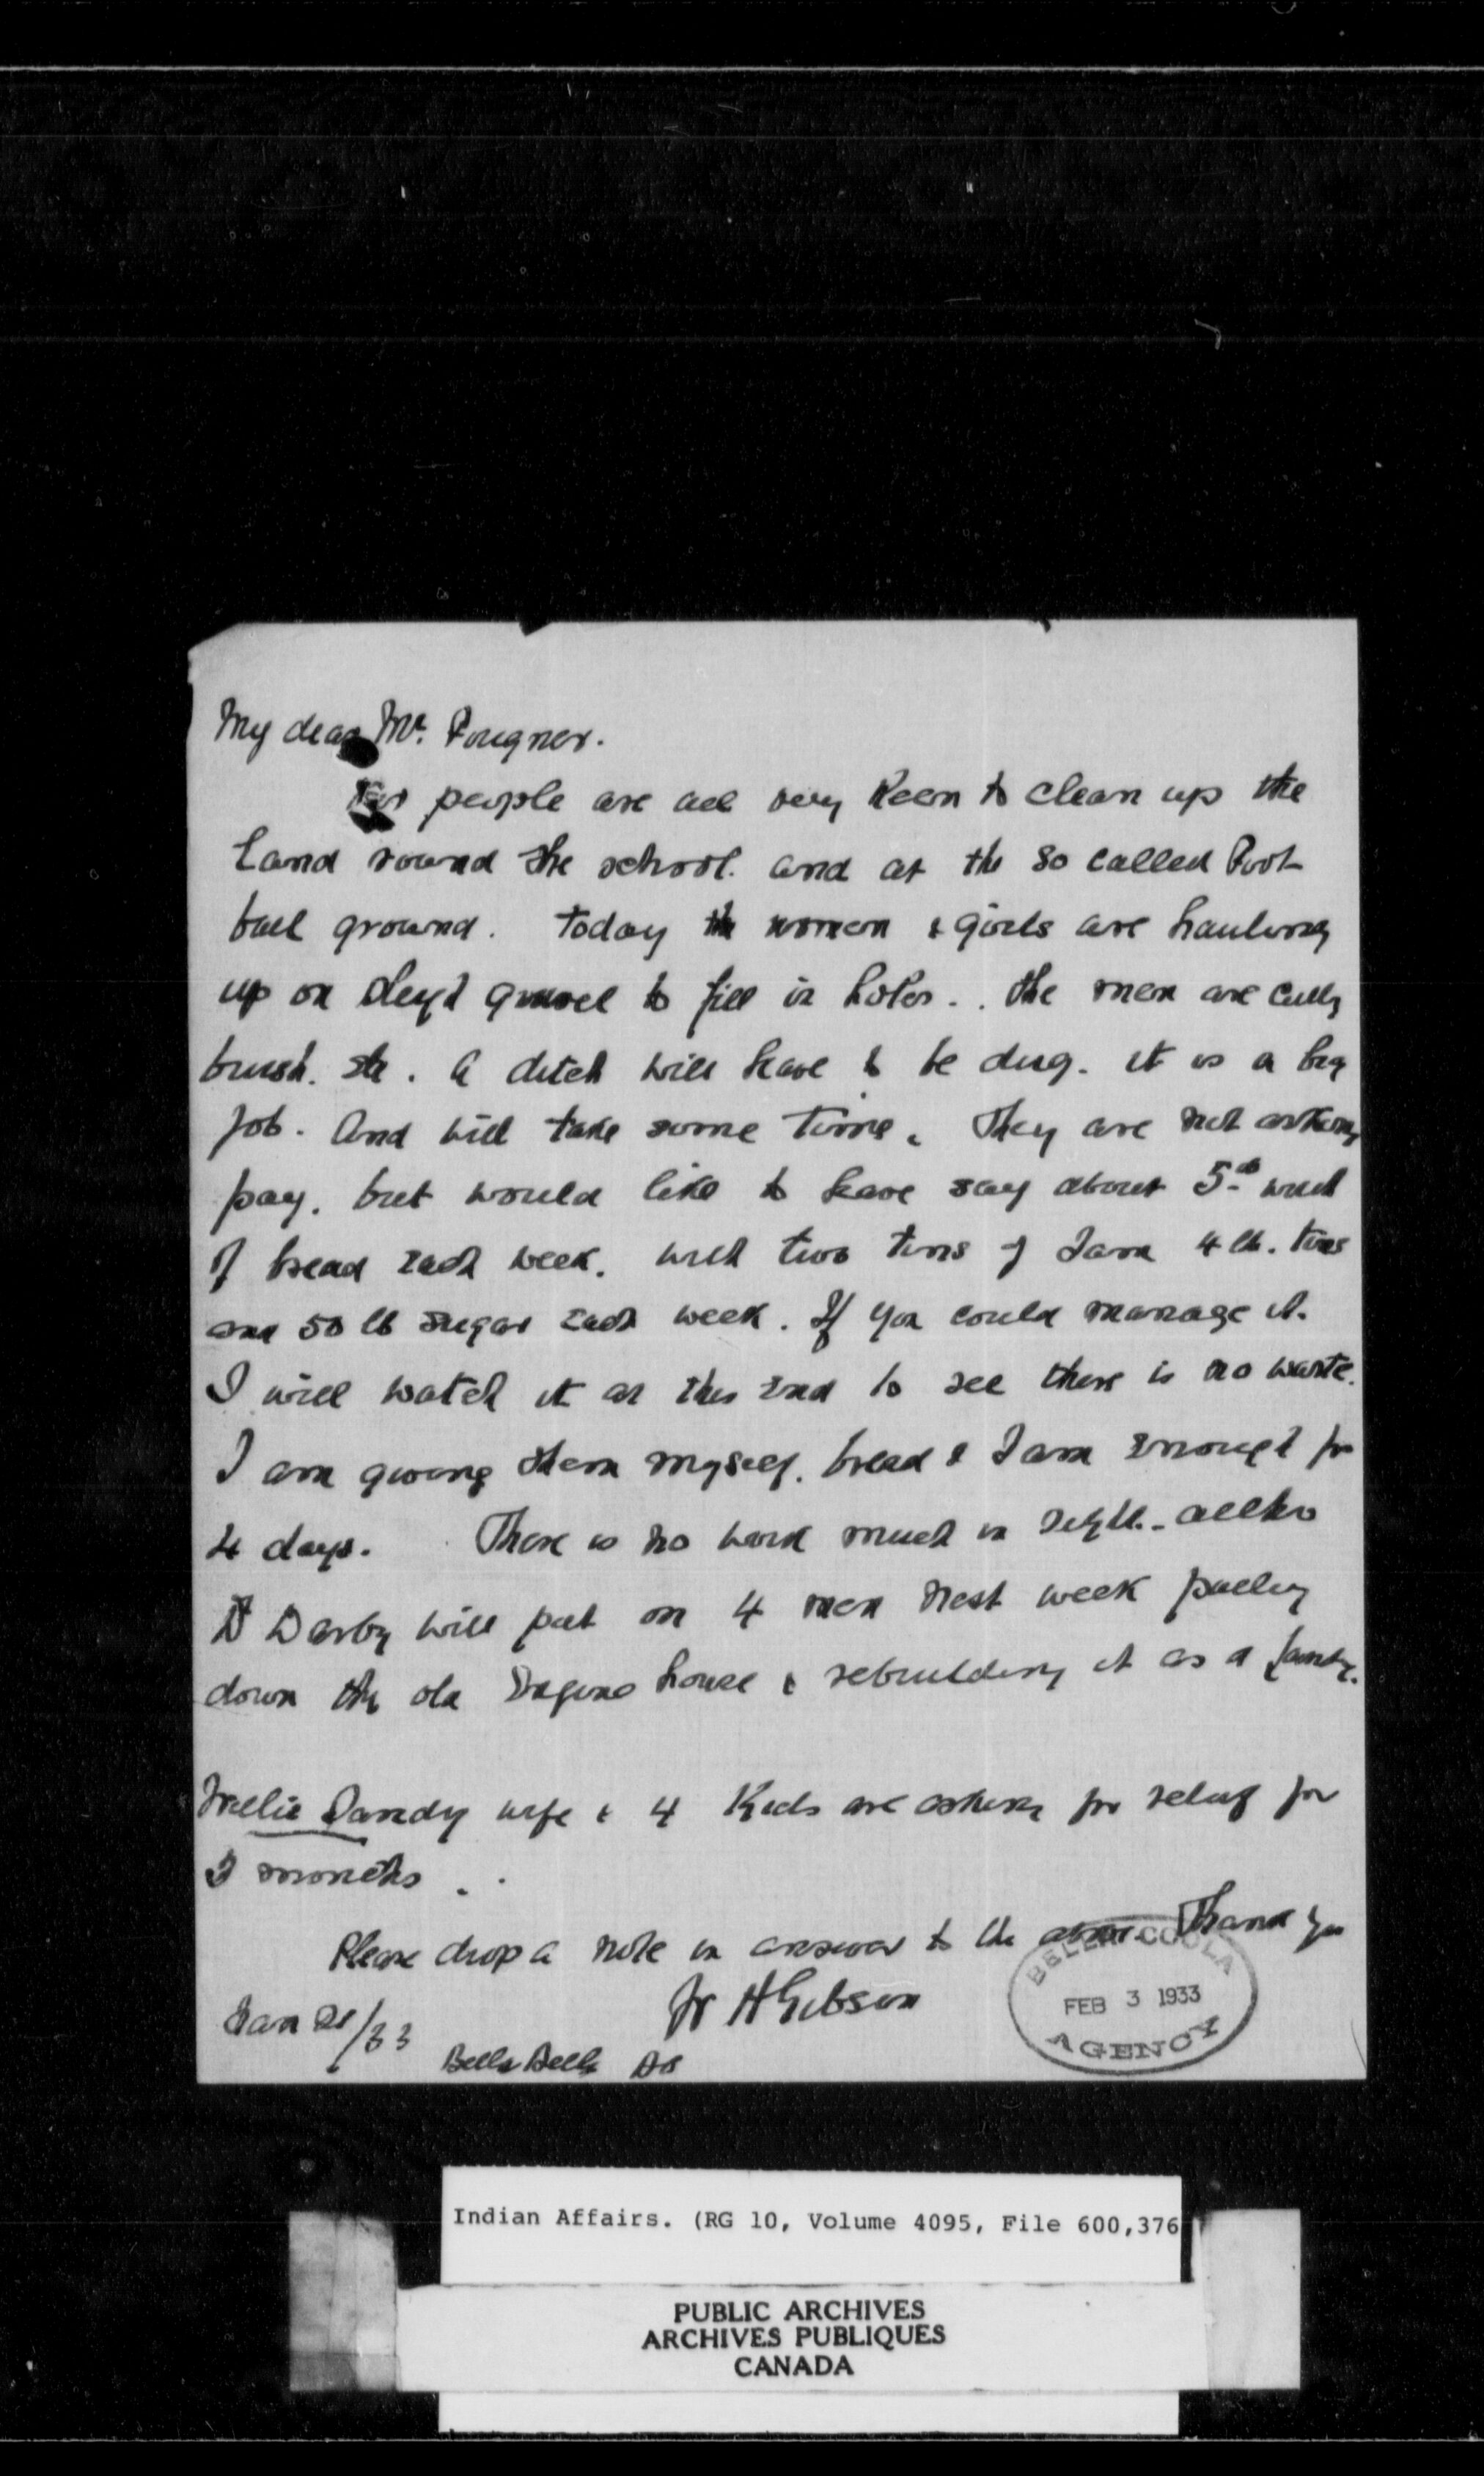 My dear Mr. Fougner.
people are all very keen to clean up the
land round the school. and at the so called Foot
ball ground. Today the women & girls are hauling
up on sleyd gravel to fill in holes.. the men are cutty
brush. etc. A ditch will have to be dug. it is a big
job. And will take some time. They are not asking
pay. but would like to have say about 5.00 worth
of bread each week. with two tins of Jam 4 lb. tins
and 50 lb sugar each week. If you could manage it.
I will watch it at this end to see there is no waste.
I am giving them myself. bread & Jam enough for
4 days. There is no work much in
Dr Darby will put on 4 men next week pulling
down the old Engine house & rebuilding it as a
Willie Dandy wife & 4 Kids are asking for relief for
2 months . .
Please drop a note in answer to the above. Thank you
Wr H Gibson
Jan 21/33
Bella Bella BC
BELLA COOLA
FEB 3 1933
AGENCY
Indian Affairs. (RG 10, Volume 4095, File 600,376
PUBLIC ARCHIVES
ARCHIVES PUBLIQUES
CANADA